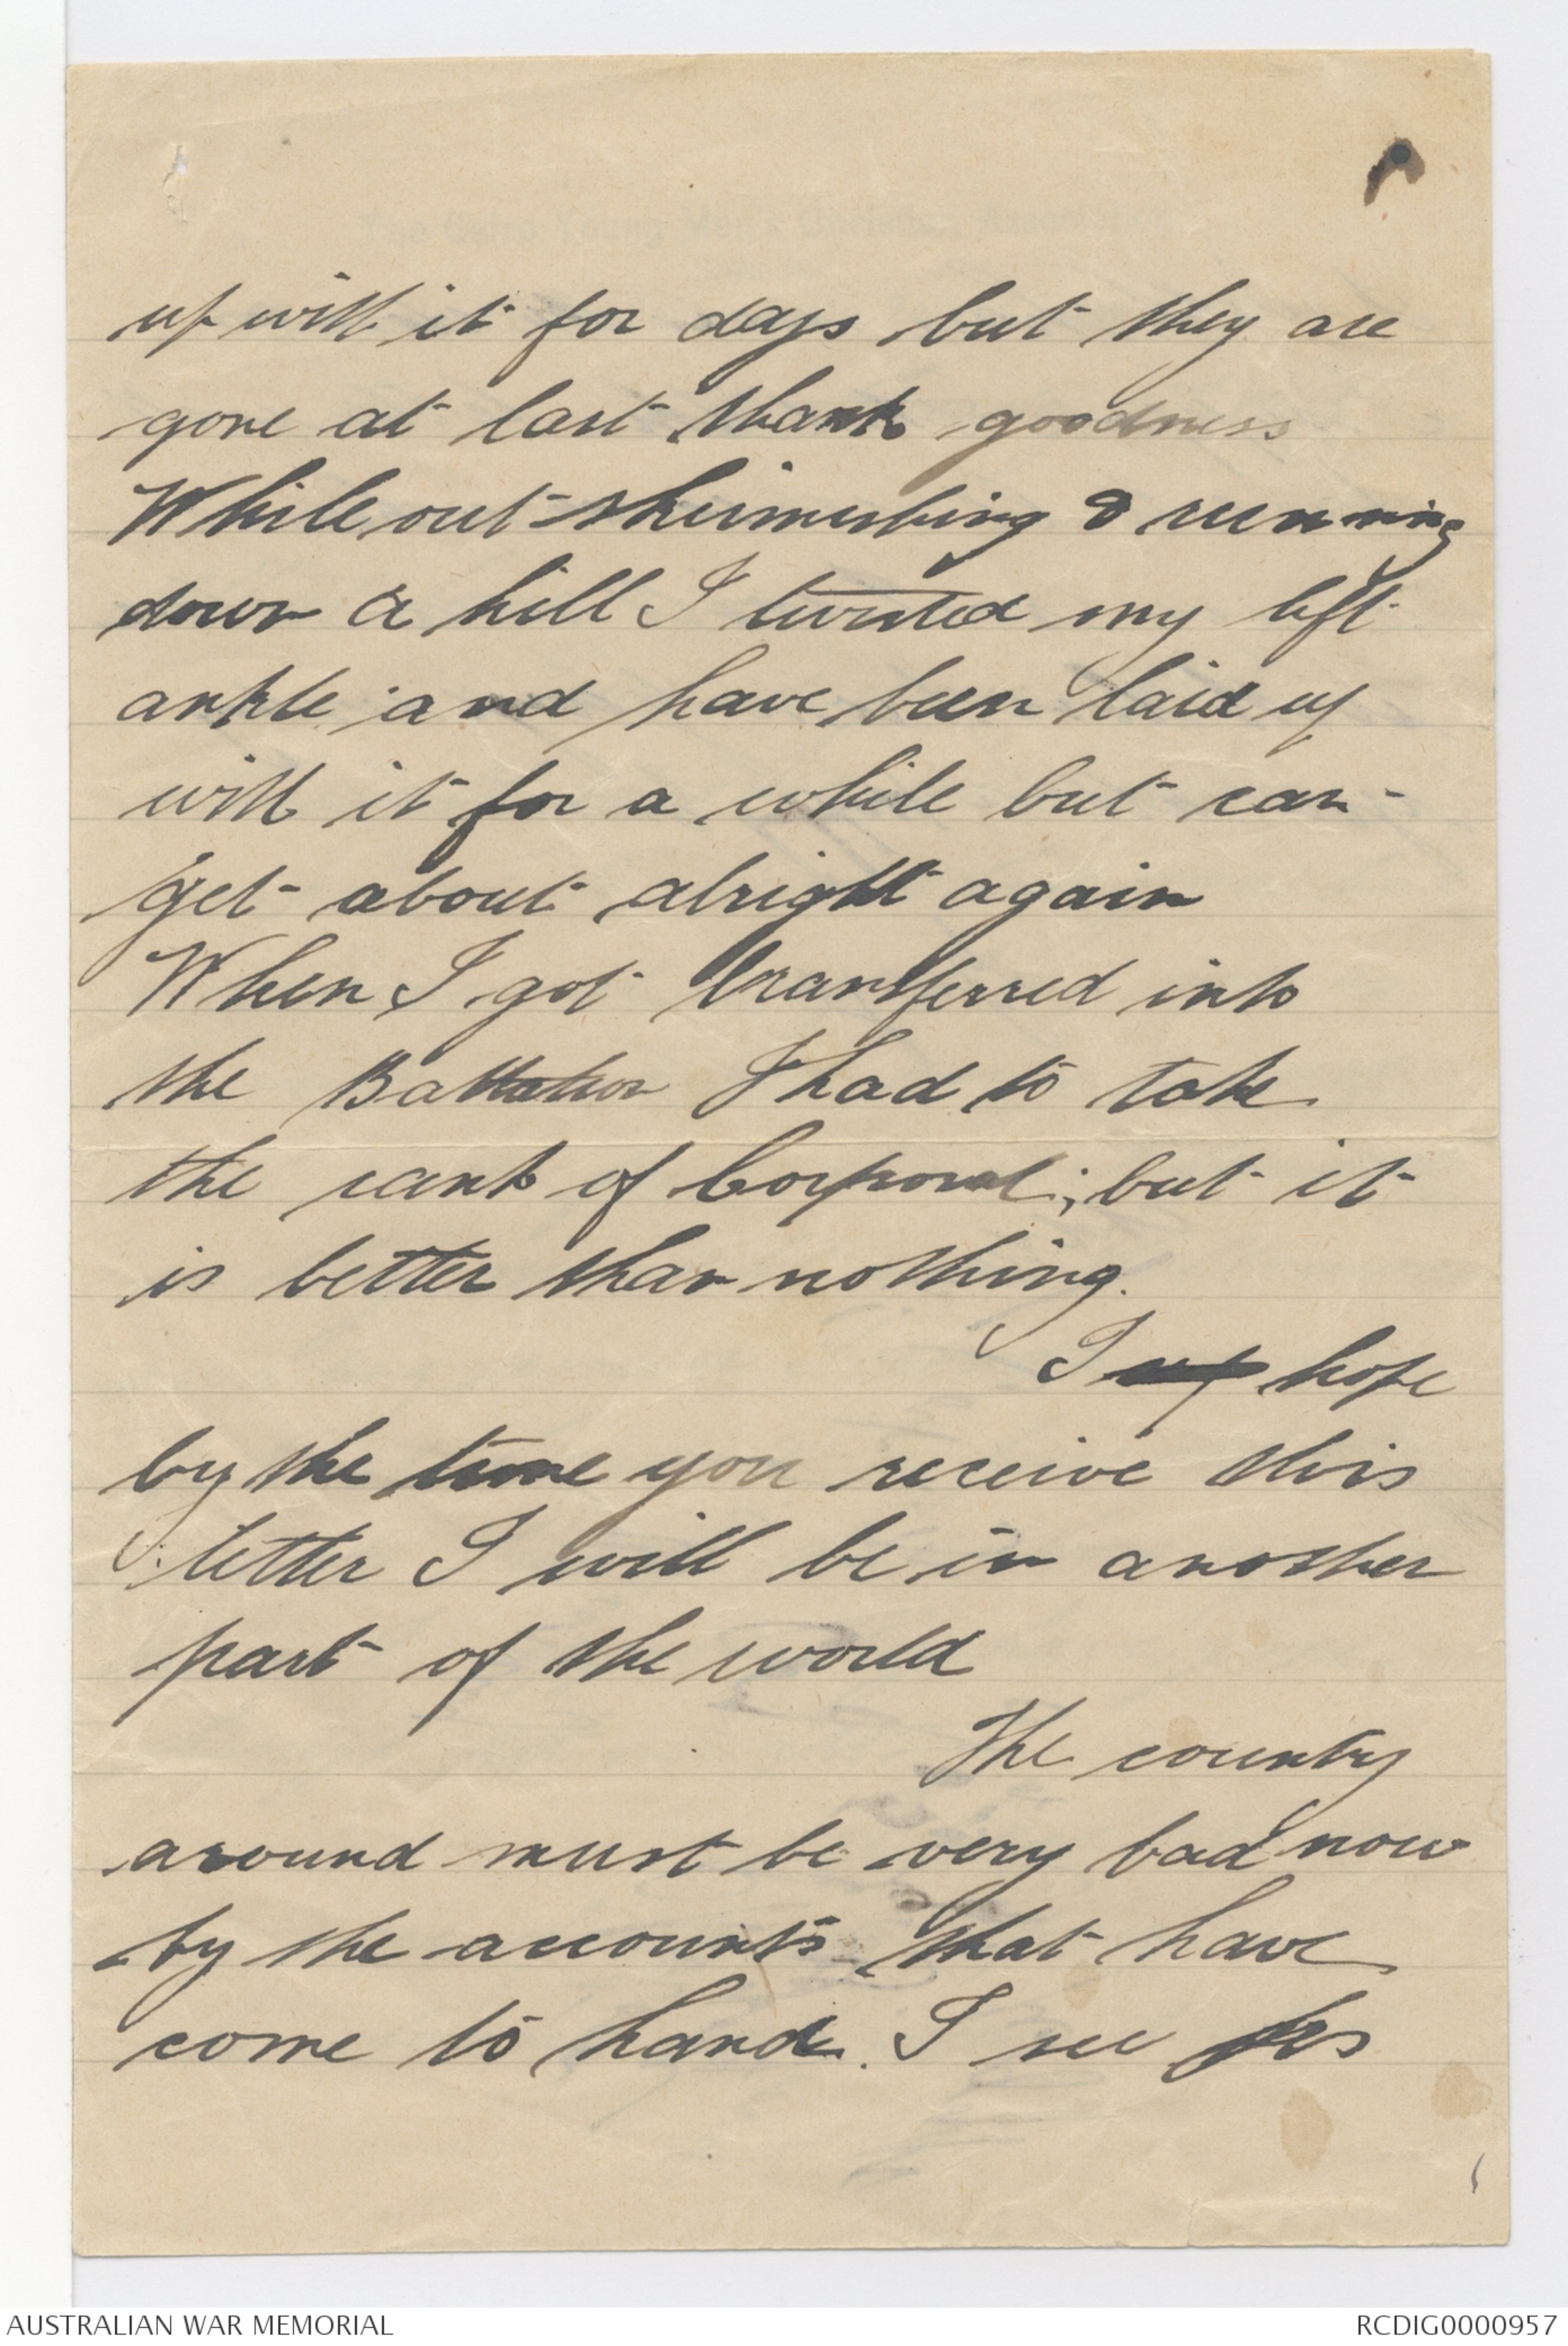 up with it for days but they are
gone at last thank goodness
While out skirmishing & running
down a hill I twisted my left
ankle and have been laid up
with it for a while but can
get about alright again
When I got transferred into
the Battalion I had to take
the rank of Corporal; but it
is better than nothing.
I hope
by the time you receive this
letter I will be in another
part of the world
The country
around must be very bad now
by the accounts that have
come to hand. I see
AUSTRALIAN WAR MEMORIAL
RCDIG0000957